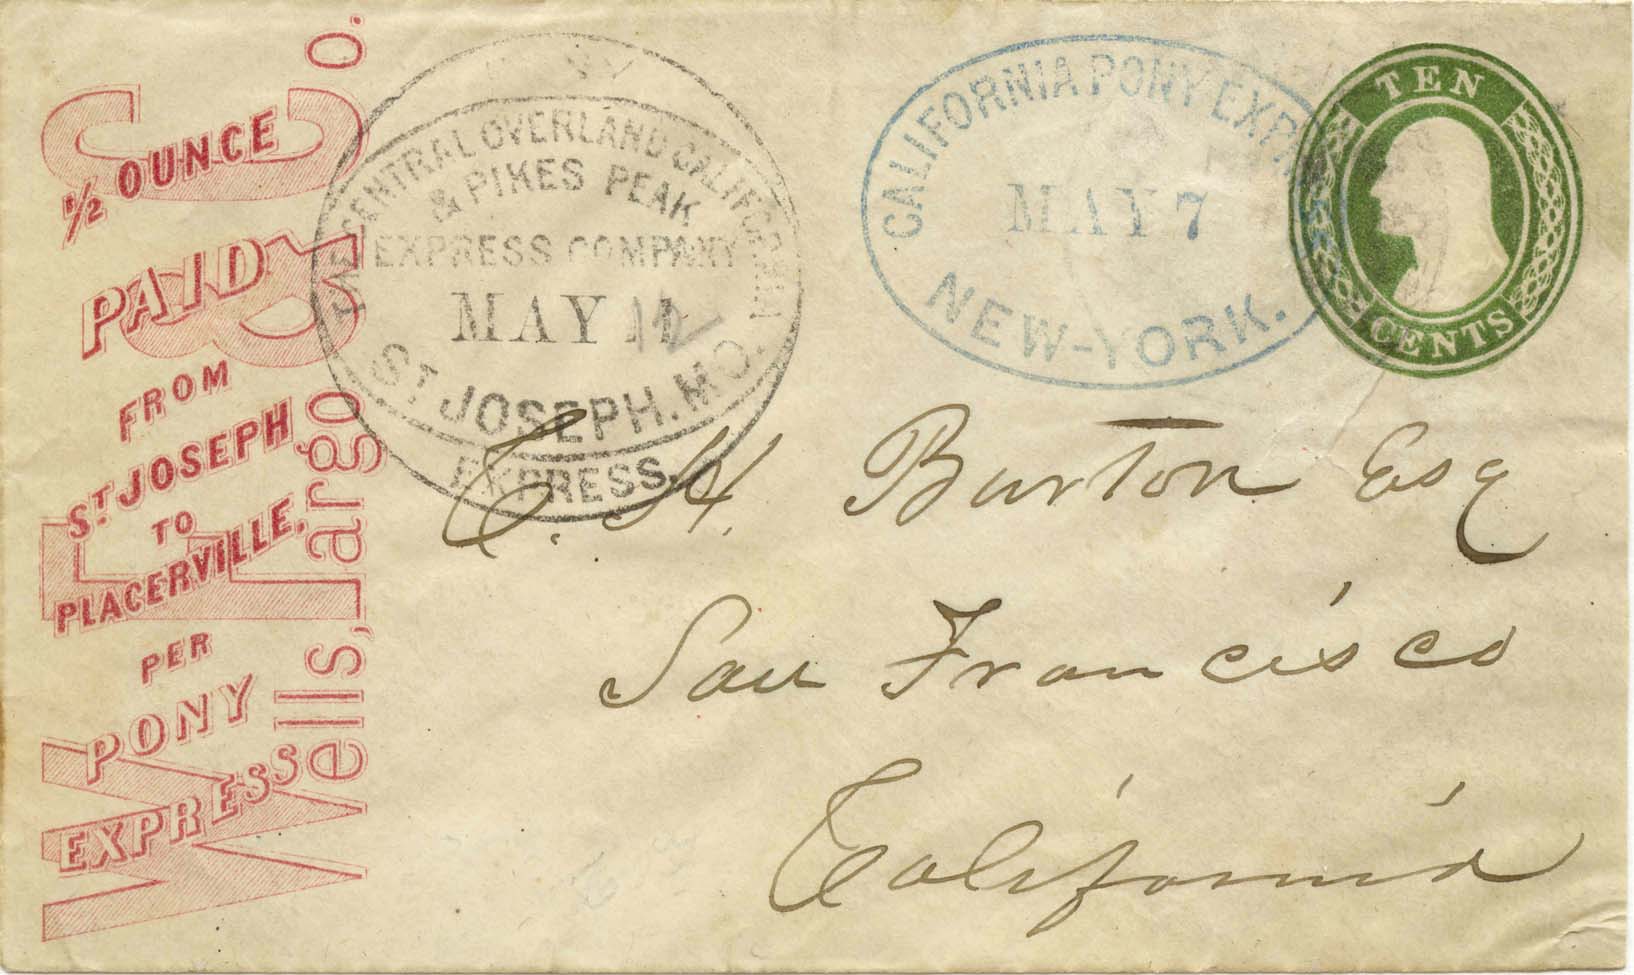 ½ OUNCE
PAID
FROM
ST JOSEPH
TO
PLACERVILLE.
PER
PONY
EXPRESS
Wells, Fargo & Co.
CENTRAL OVERLAND CALIFORNIA
& PIKES PEAK
EXPRESS COMPANY
MAY
ST JOSEPH. MO.
EXPRESS.
CALIFORNIA PONY EXPRESS
MAY 7
NEW-YORK.
TEN
CENTS
C. H. Burton Esq
San Francisco
California